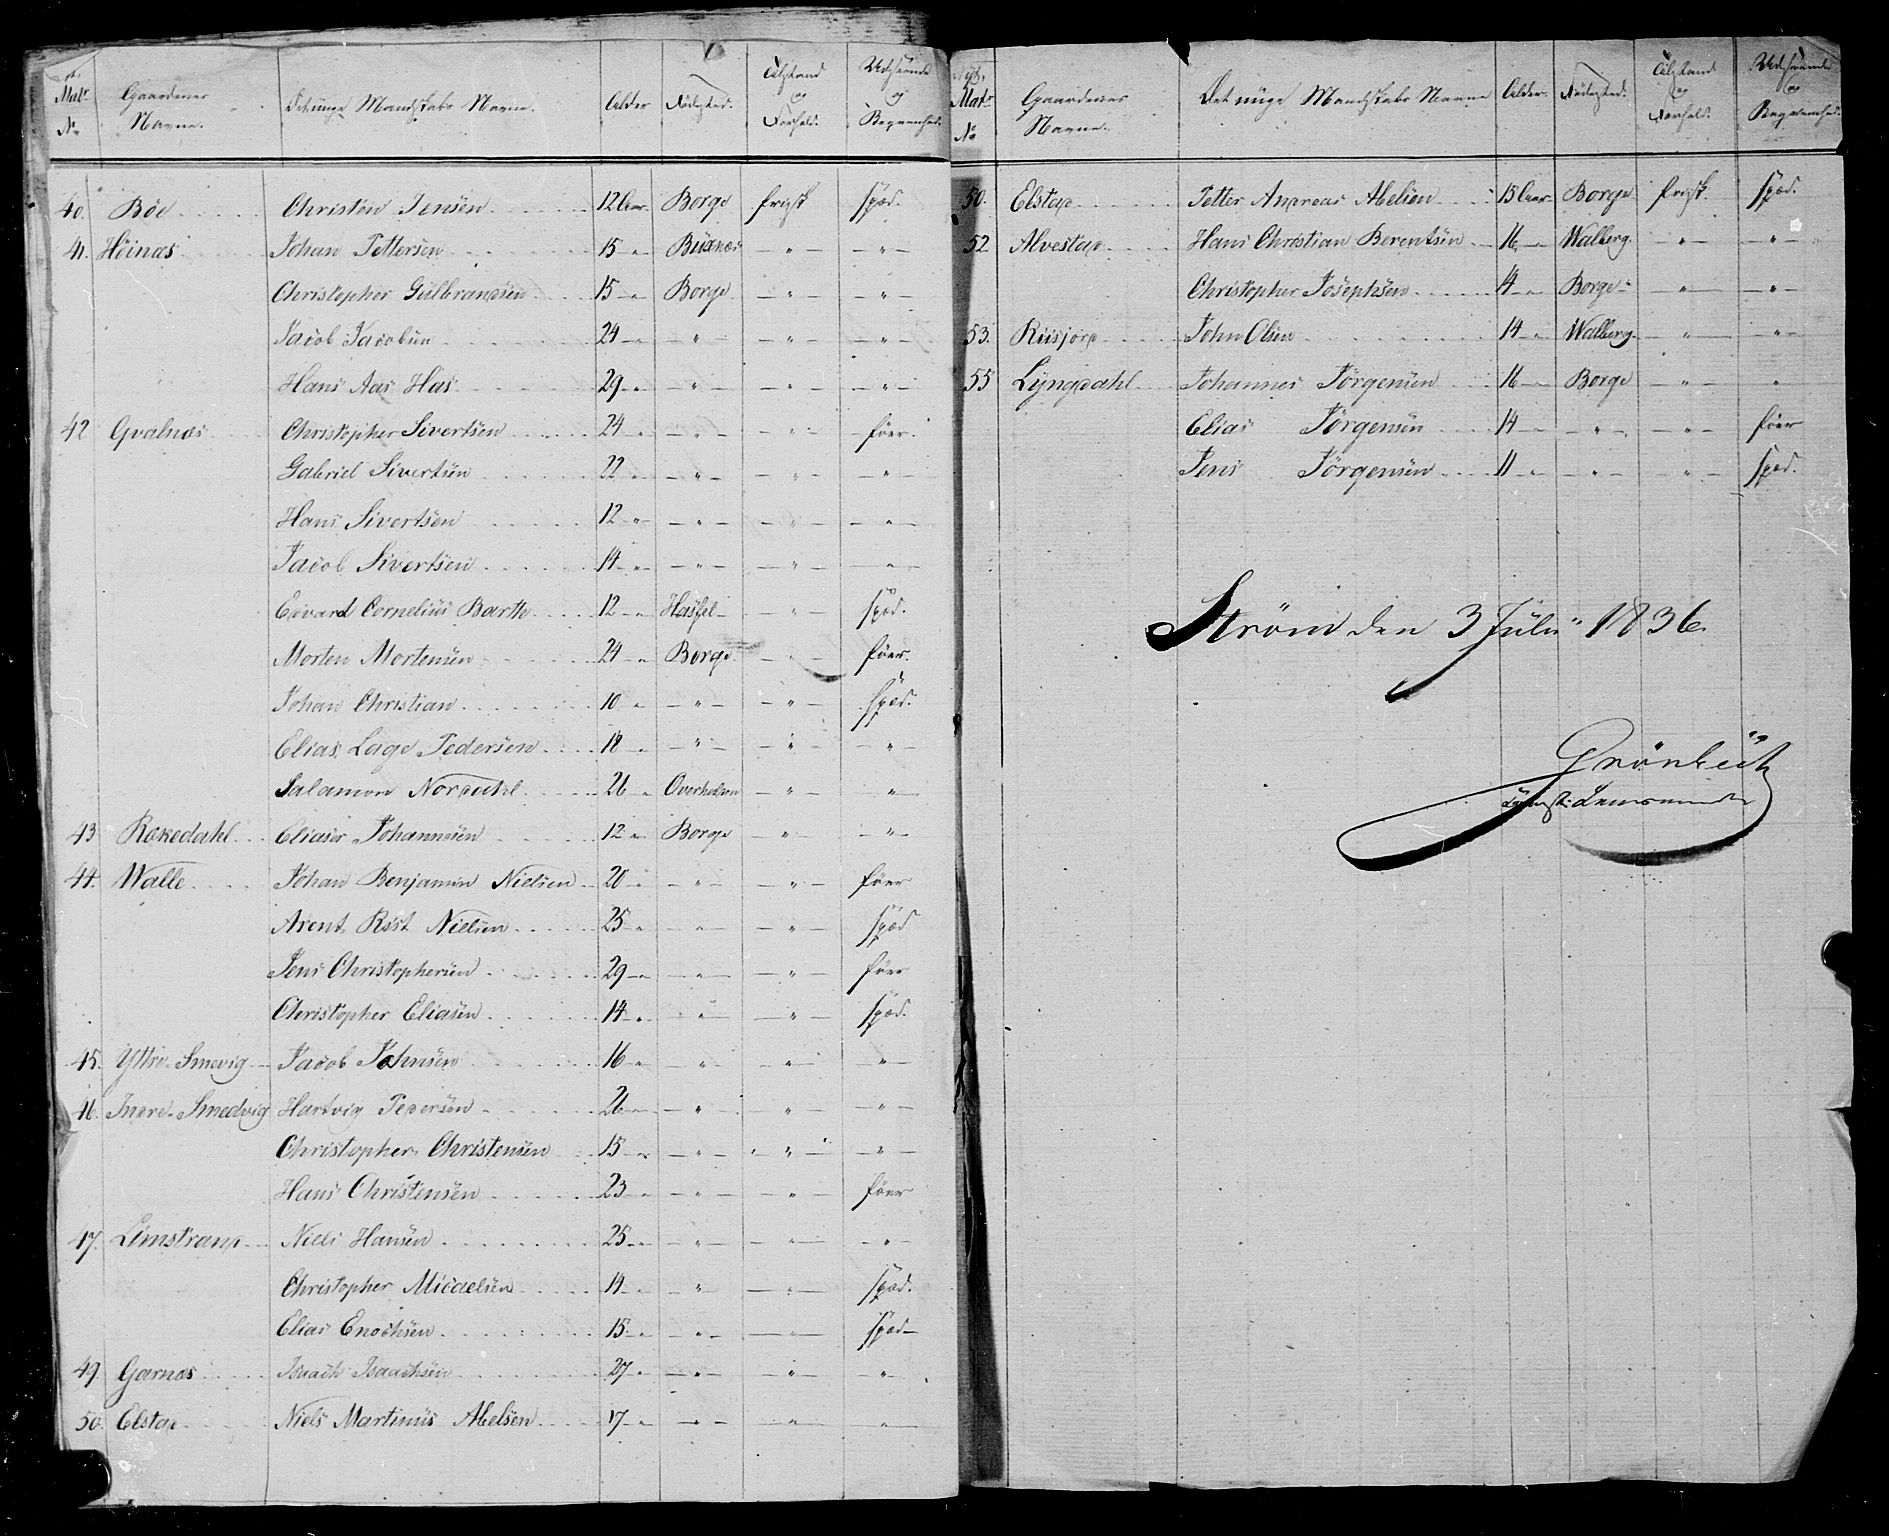 Matr No Gaardenes Navne. Det unge Mandskabs Navne. Alder Födested. Tilstand og Forhold. Udseende og Beqvemhed.
40. Böe Christen Jensen 12 Aar Borge frisk spæd.
41. Höinæs Johan Pettersen 15 " Buxnæs " "
Christopher Gulbrandsen 15 " Borge " "
Jacob Jacobsen 24 " " " "
Hans Aas Has 29 " " " "
42 Gvalnæs Christopher Sivertsen 24 " " " föer.
Gabriel Sivertsen 22 " " " "
Hans Sivertsen 12 " " " "
Jacob Sivertsen 14 " " " "
Edvard Cornelius Barth 12 " Hassel " spæd.
Morten Mortensen 24 " Borge " föer.
Johan Christian 10 " " " spæd.
Elias Lage Pedersen 18 " " " "
Salamon Nordahl 26 " Overhalden " "
43 Rækedahl Eliaser Johannsen 12 " Borge " "
44. Walle Johan Benjamin Nielsen 20 " " " föer
Arent Rist Nielsen 25 " " " spæd
Jens Christophersen 29 " " " föer
Christopher Eliasen 14 " " " spæd.
45. Yttre-Smevig Jacob Johnsen 16 " " " "
46. Indre-Smedvig Hartvig Pedersen 26 " " " "
Christopher Christensen 15 " " " "
Hans Christensen 23 " " " föer
47. Limstrand Niels Hansen 25 " " " "
Christopher Micaelsen 14 " " " spæd.
Elias Enochsen 15 " " " spæd
49. Garnæs Isaach Isaachsen 27 " " " "
50. Elstad Niels Martinus Abelsen 17 " " " "
Matr No Gaardenes Navne. Det unge Mandskabs Navne Alder. Födested. Tilstand og Forhold. Udseende og Beqvemhed.
50. Elstad Petter Andreas Abelsen 15 Aar Borge frisk. spæd.
52 Alvestad Hans Christian Berentsen 16 " Walberg. " "
Christopher Josephsen 14 " Borge " "
53. Riisjord John Olsen 14 " Walberg. " "
55 Lyngdahl Johannes Jörgensen 16 " Borge " "
Elias Jörgensen 14 " " " föer
Jens Jörgensen 11 " " " spæd.
Ström den 3 Julii 1836.
Grönbech
Lensmand